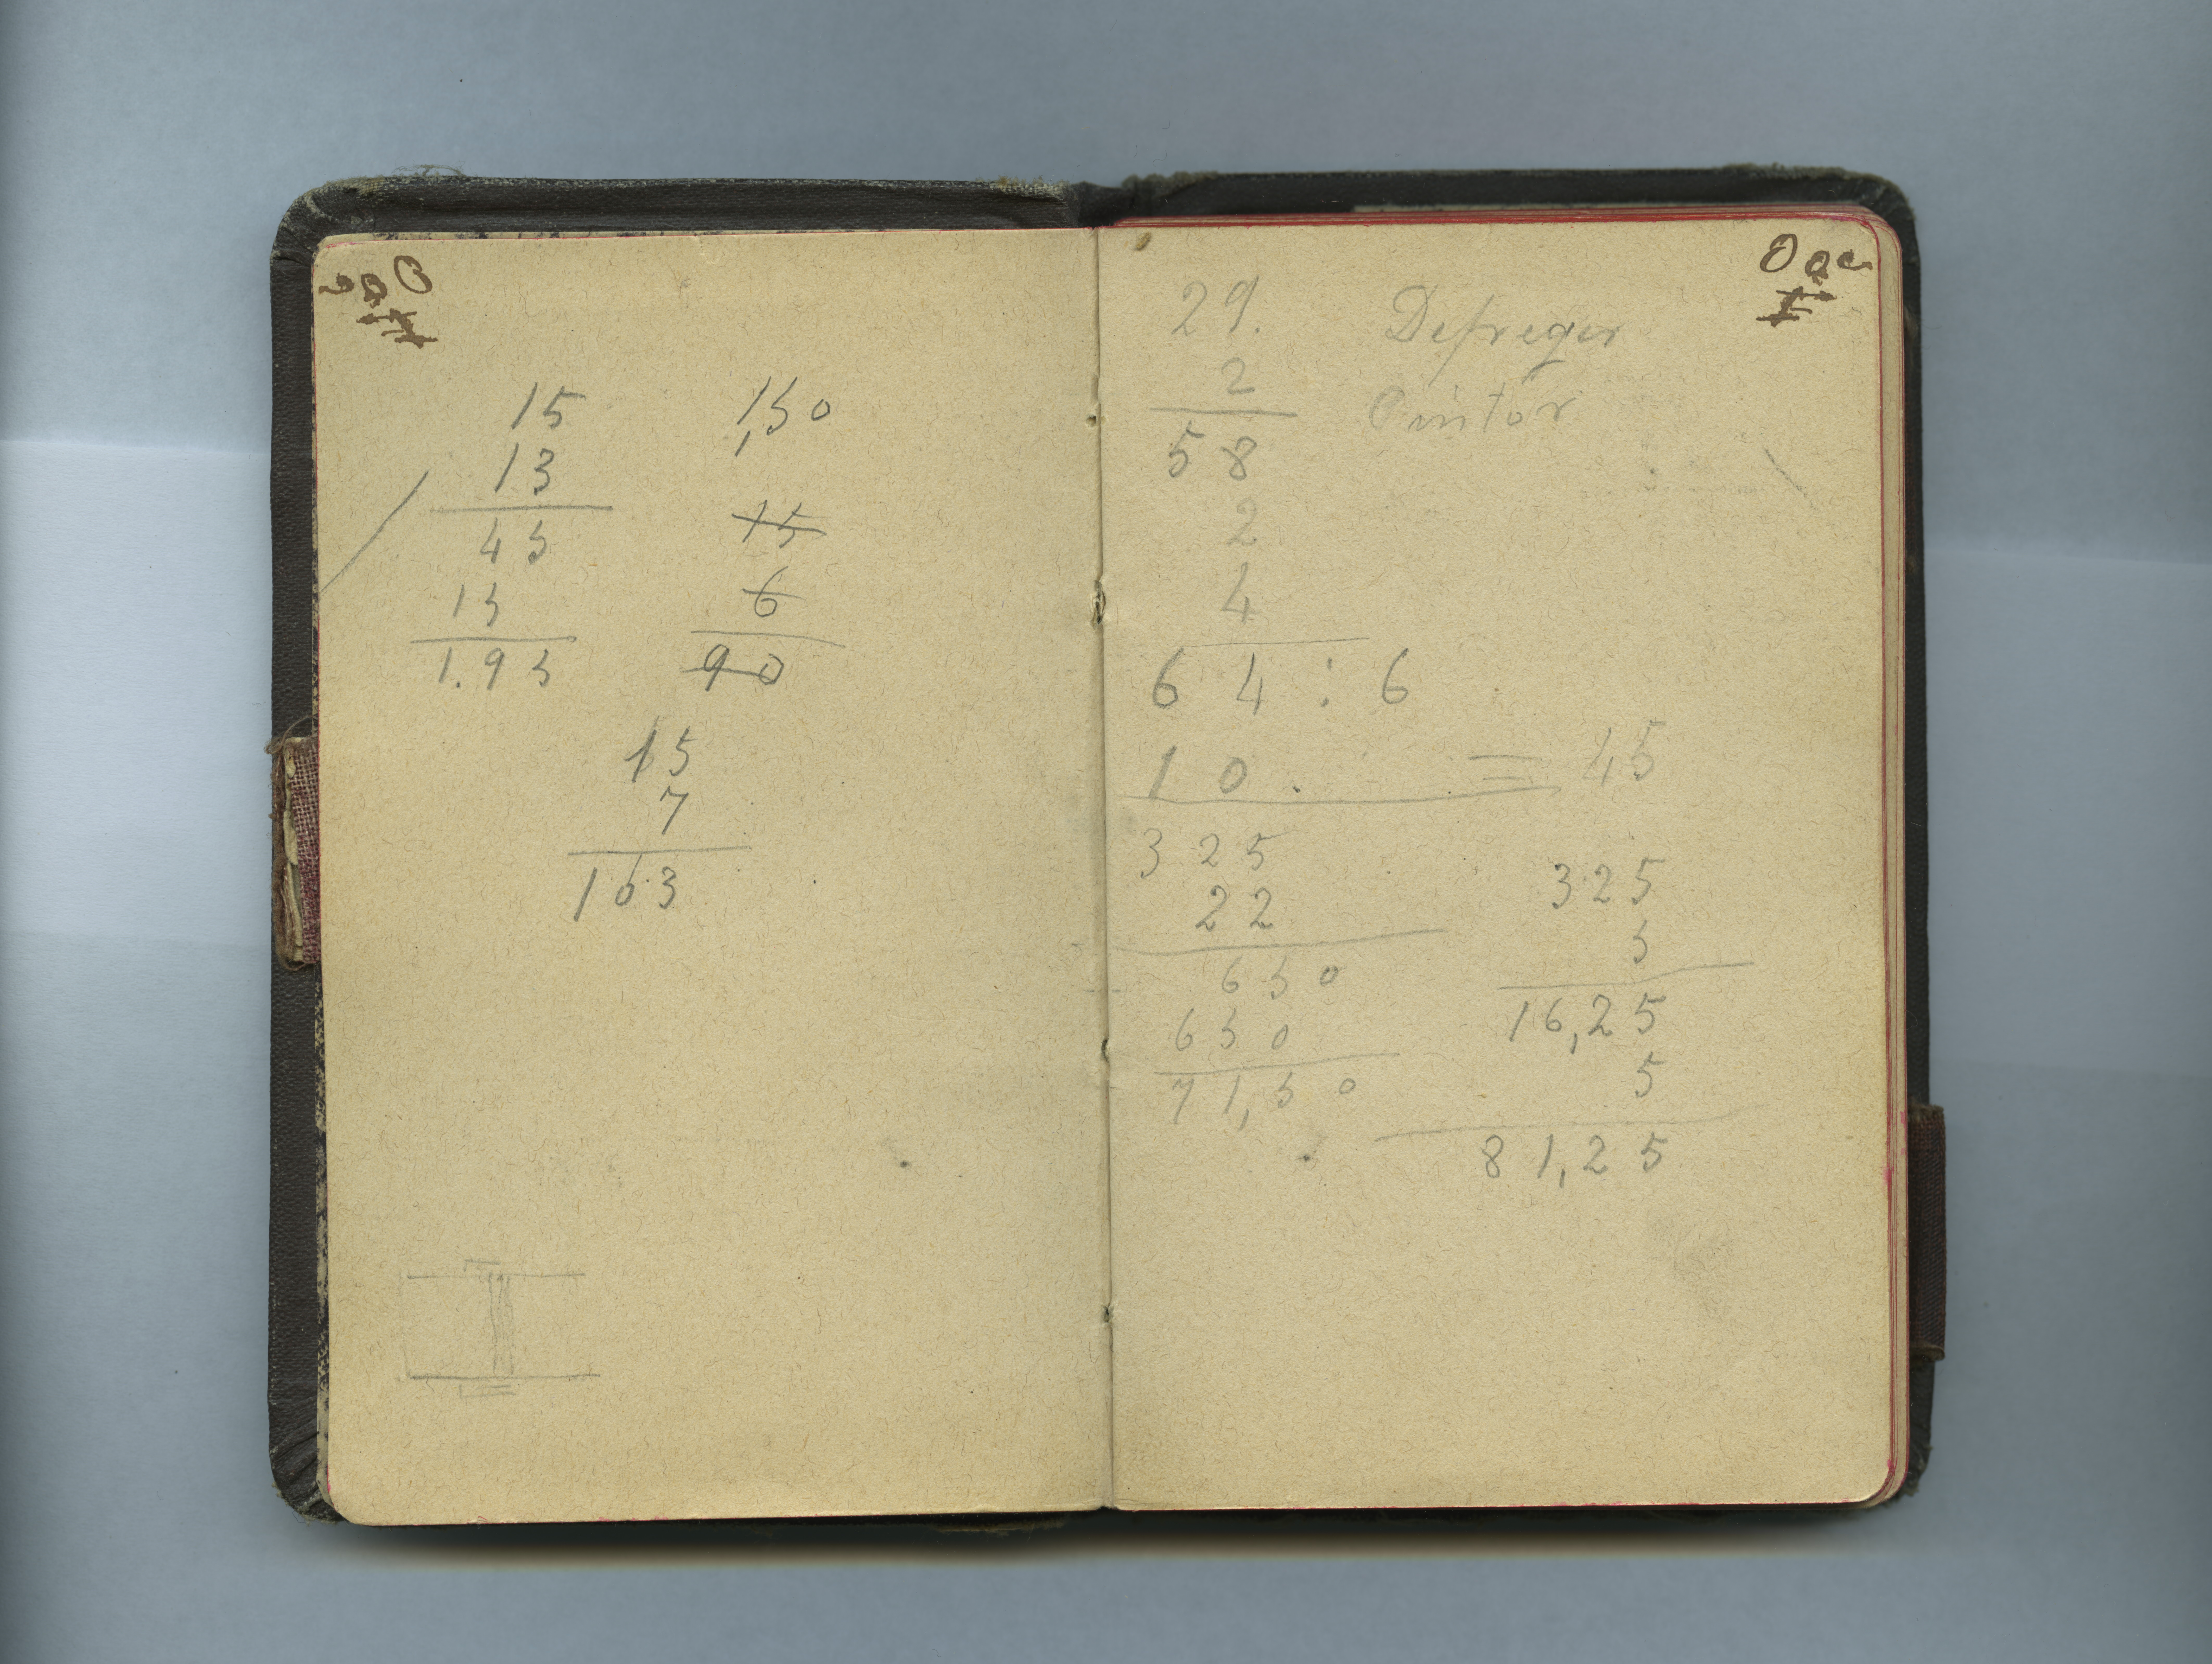 15
13
45
15
1.95
1,50
15
6
90
15
7
163
29.
2
58
2
4
64 : 6
10. = 45
Defreger
Pintor
325
22
650
650
71,50
325
5
16,25
5
81,25